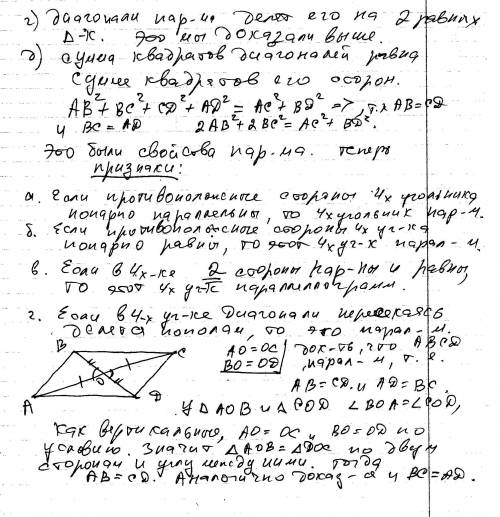 г) Диагонали пар-ма делят его на 2 равных
Δ-ка. Это мы доказали выше.
д) Сумма квадратов диагоналей равна
сумме квадратов его сторон.
AB²+BC²+CD²+AD²=AC²+BD² =>, т.к AB=CD
и BC=AD 2AB²+2BC²=AC²+BD².
Это были свойства пар-ма. теперь
признаки:
а. Если противоположные стороны 4х угольника
попарно параллельны, то 4х угольник пар-м.
б. Если противоположные стороны 4х уг-ка
попарно равны, то этот 4х уг-к парал-м.
в. Если в 4х-ке 2 стороны пар-ны и равны,
то этот 4х уг-к параллелограмм.
г. Если в 4-х уг-ке диагонали пересекаясь
делятся пополам, то это парал-м.
B C AO=OC док-ть, что ABCD
BO=OD парал-м, т.е.
O AB=CD и AD=BC.
A D У Δ AOB и Δ COD ∠BOA=∠COD,
как вертикальные, AO=OC и BO=OD по
условию. Значит ΔAOB=ΔDOC по двум
сторонам и углу между ними. Тогда
AB=CD. Аналогично доказ-ся и BC=AD.